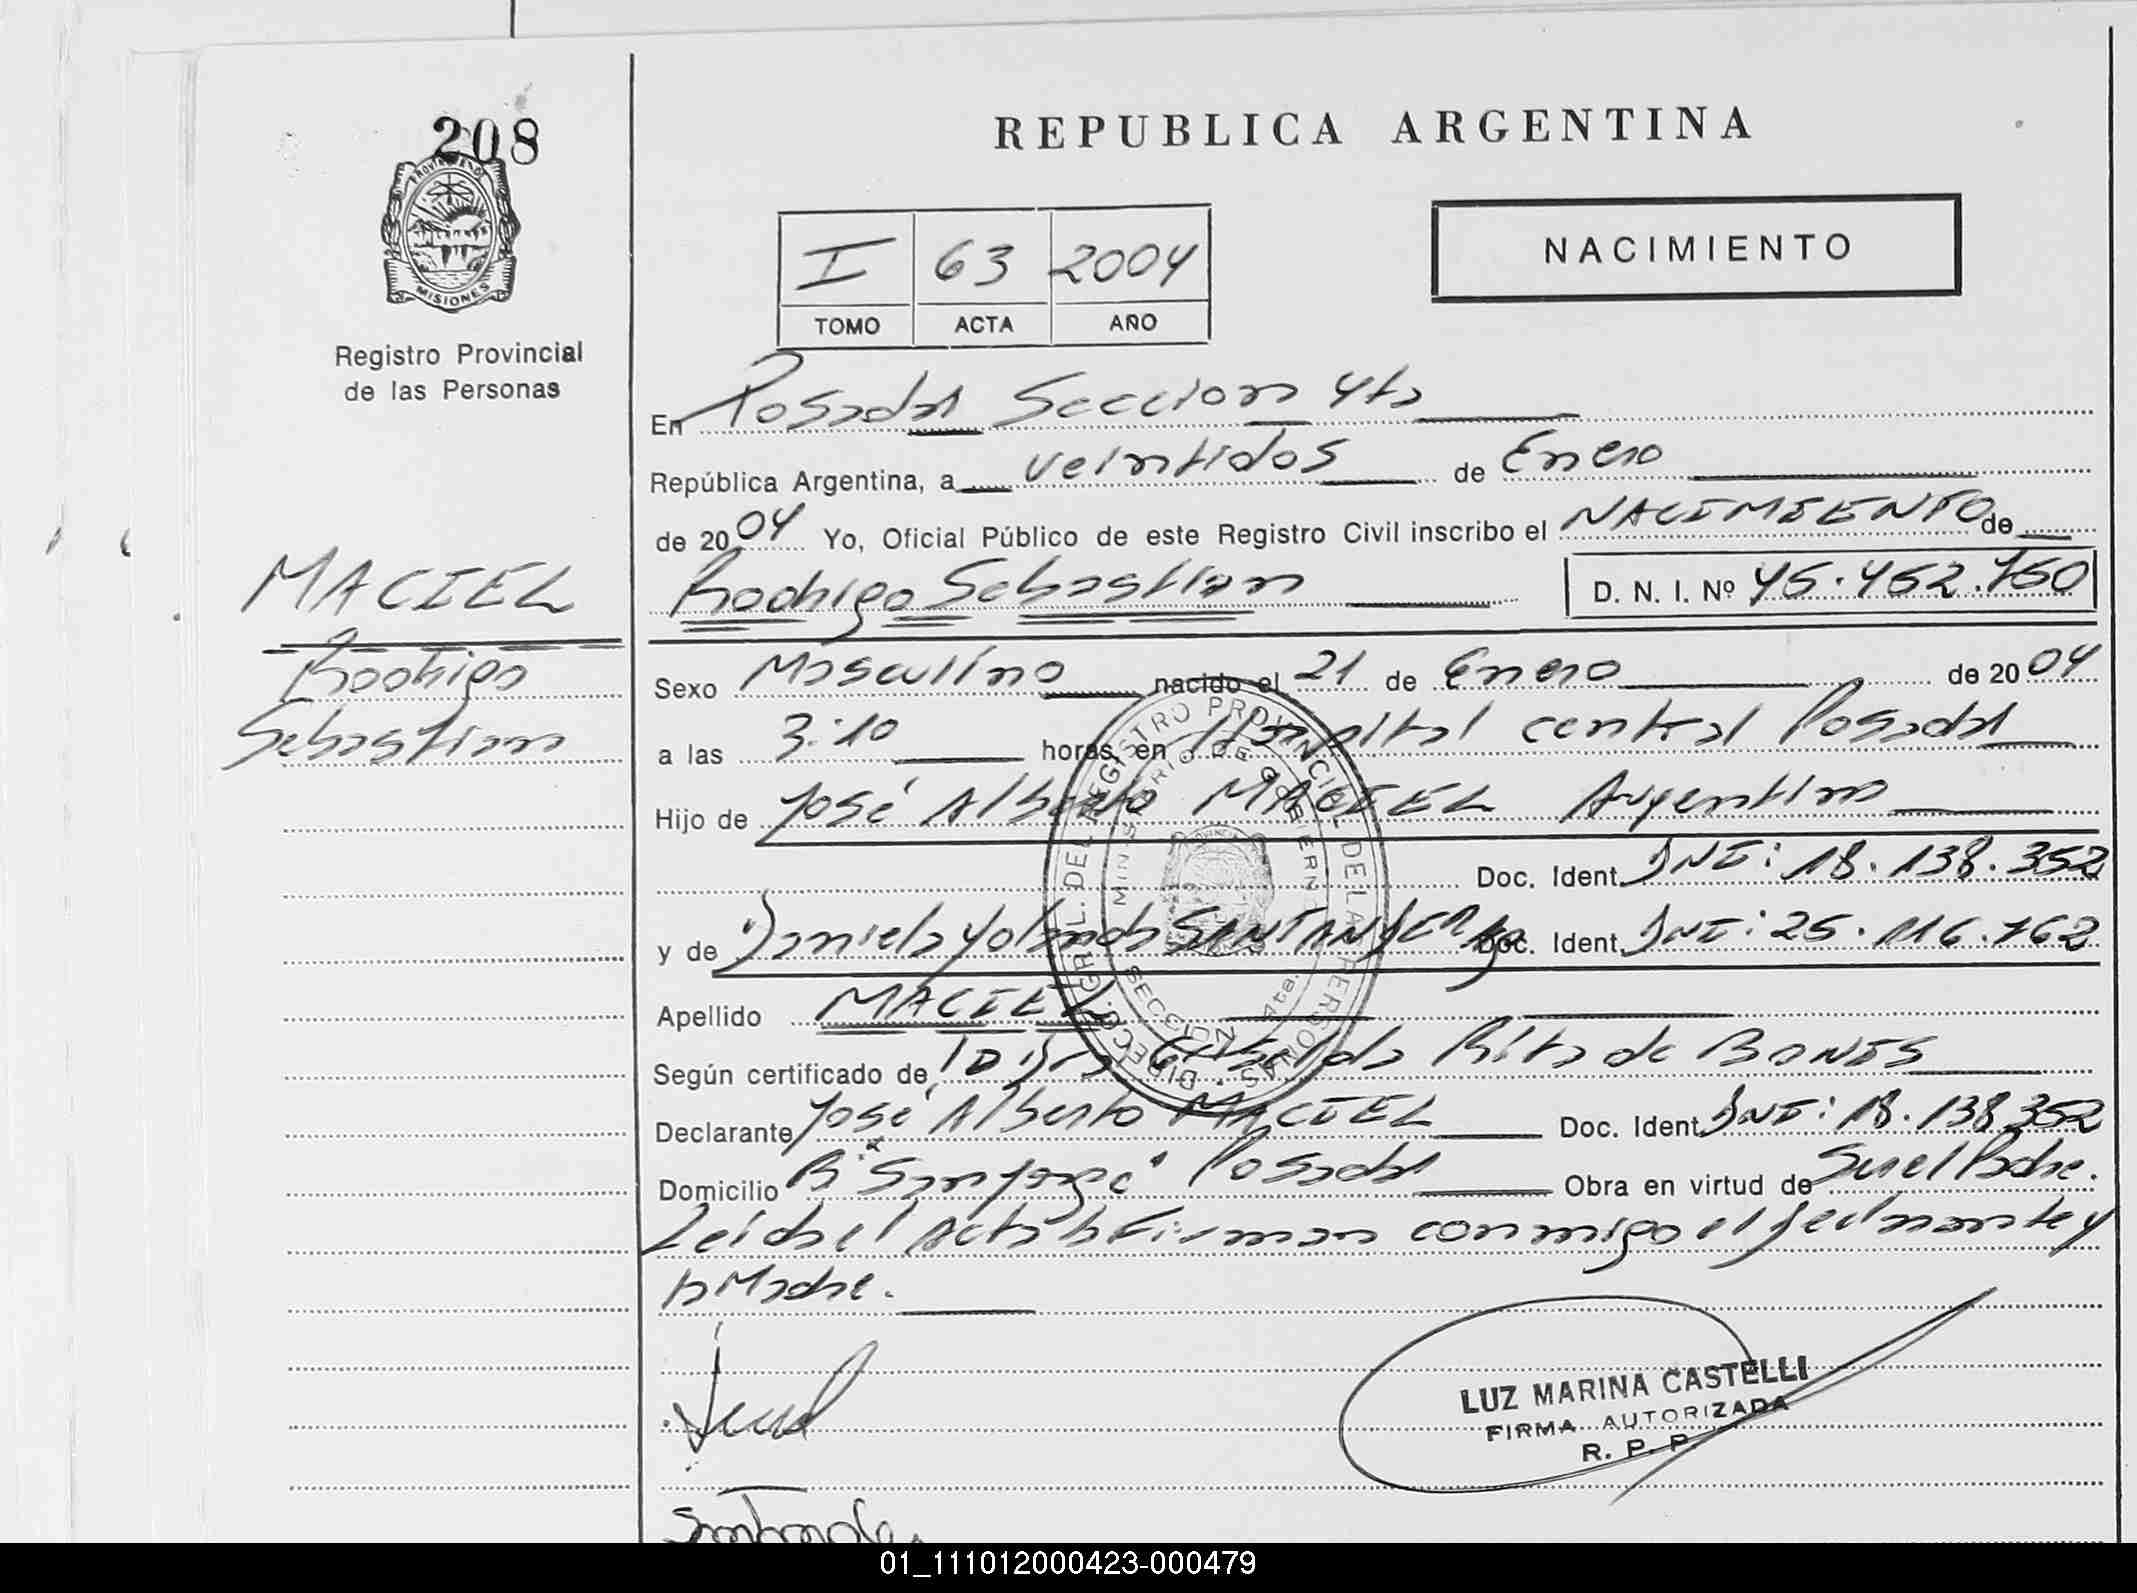 208
PROVINCIA DE
MISIONES
Registro Provincial
de las Personas
MACIEL
Rodrigo
Sebastian
REPUBLICA ARGENTINA
I 63 2004
TOMO ACTA AÑO
NACIMIENTO
En Posadas Seccion 4ta
República Argentina, a veintidos de Enero
de 2004 Yo, Oficial Público de este Registro Civil inscribo el NACIMIENTO de
Rodrigo Sebastian D. N. I. Nº 45.452.750
Sexo Masculino nacido el 21 de Enero de 2004
a las 3:10 horas, en Hospital central Posadas
Hijo de José Alberto MACIEL Argentino
Doc. Ident. DNI: 18.138.352
y de Daniela Yolanda SANTANDER Arg Doc. Ident. DNI: 25.116.762
Apellido MACIEL
Según certificado de Rita de BONES
Declarante José Alberto MACIEL Doc. Ident. DNI: 18.138.352
Domicilio B° "San Jorge" Posadas Obra en virtud de Ser el Padre.
Leida el Acta la Firman conmigo el declarante y
la Madre.
DIREC. GRAL. DEL REGISTRO PROVINCIAL DE LAS PERSONAS
MINISTERIO DE GOBIERNO
SECCION 4ta.
LUZ MARINA CASTELLI
FIRMA AUTORIZADA
R. P. P.
01_111012000423-000479